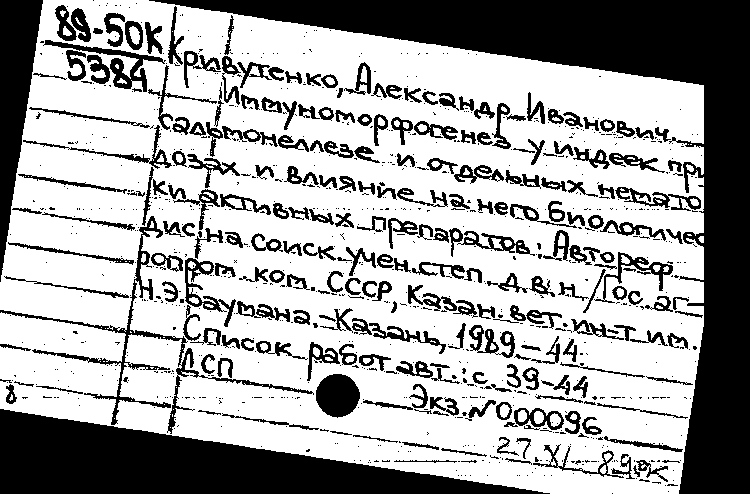 89-50К
5384
Кривутенко, Александр Иванович.
Иммуноморфогенез у индеек при
сальмонеллезе и отдельных немато
дозах и влияние на него биологичес
ки активных препаратов: Автореф
дис. на соиск. учен. степ. д.в.н /Гос. аг-
ропром. ком. СССР, Казан. вет. ин-т им.
Н.Э.Баумана.-Казань, 1989-44.
Список работ авт.: с. 39-44.
ДСП
Экз.№000096
27.XI 89
8